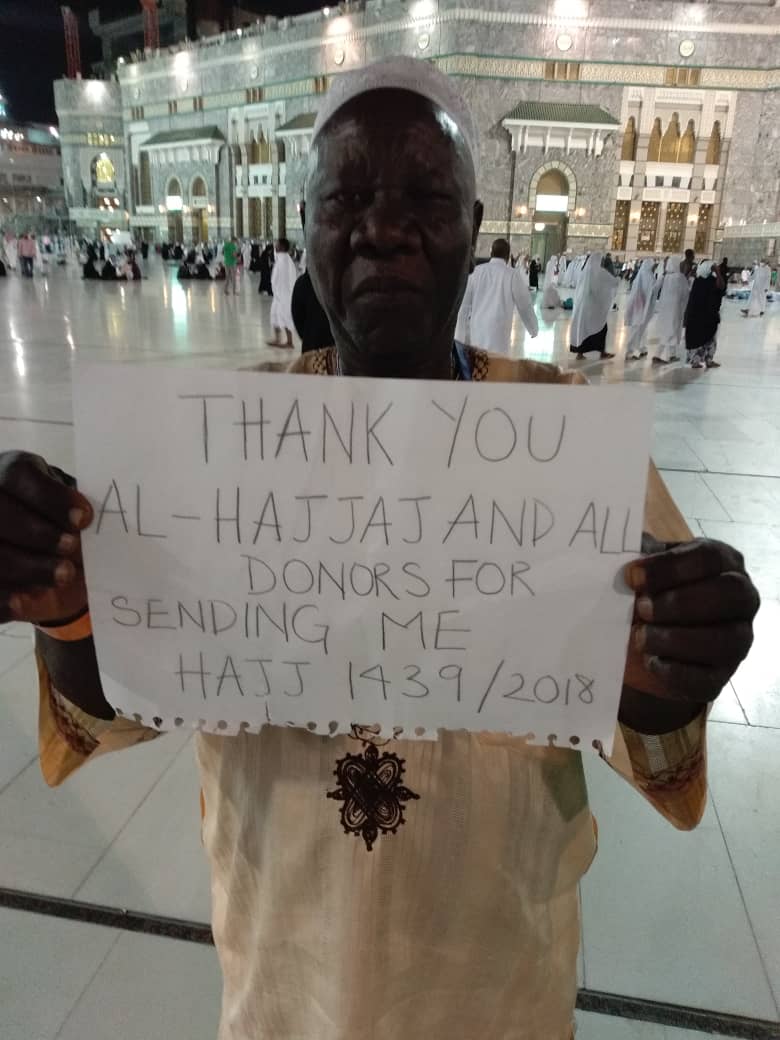 THANK YOU
AL-HAJJAJ AND ALL
DONORS FOR
SENDING ME
HAJJ 1439/2018